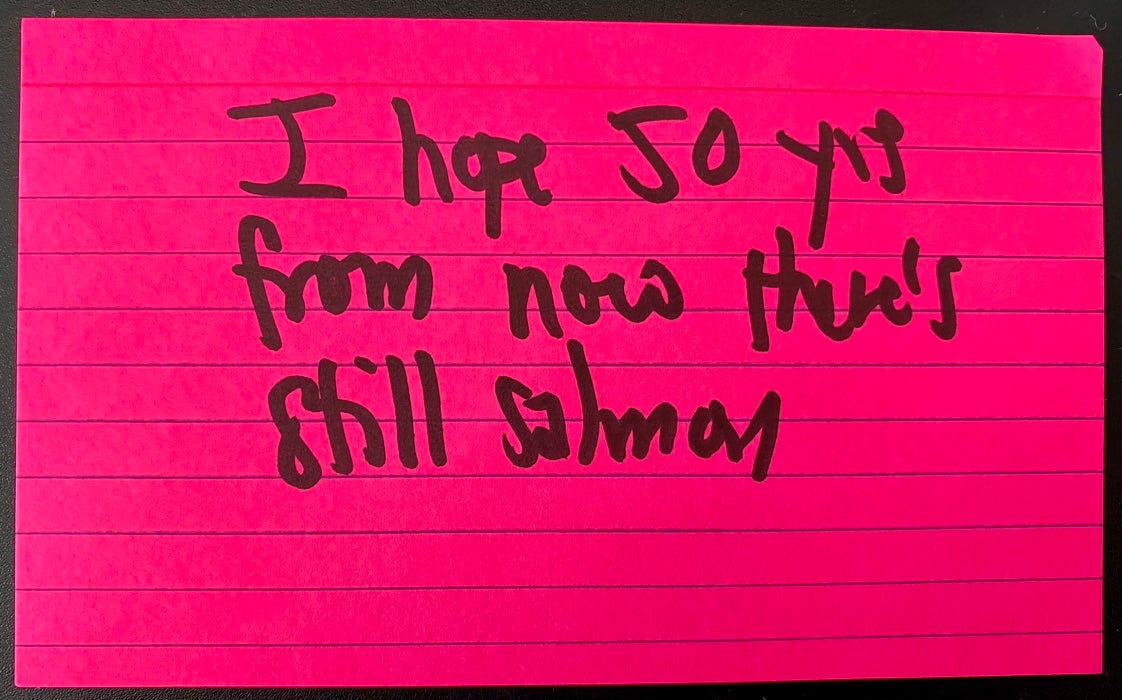 I hope 50 yrs
from now there's
still salmon